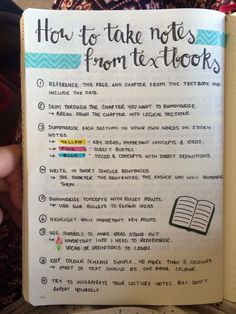 How to take notes
from textbooks
① REFERENCE THE PAGE AND CHAPTER FROM THE TEXTBOOK AND
INCLUDE THE DATE.
② SKIM THROUGH THE CHAPTER YOU WANT TO SUMMARISE
↳ BREAK DOWN THE CHAPTER INTO LOGICAL SECTIONS
③ SUMMARISE EACH SECTION IN YOUR OWN WORDS ON STICKY
NOTES
↳ YELLOW - KEY IDEAS, IMPORTANT CONCEPTS & IDEAS
↳ PINK - DIRECT QUOTES
↳ BLUE - VOCAB & CONCEPTS WITH DIRECT DEFINITIONS
④ WRITE IN SHORT CONCISE SENTENCES
↳ THE SHORTER THE SENTENCES THE EASIER YOU WILL REMEMBER
THEM
⑤ SUMMARISE CONCEPTS WITH BULLET POINTS
↳ USE SUB BULLETS TO EXPAND IDEAS
⑥ HIGHLIGHT ONLY IMPORTANT KEY POINTS
⑦ USE SYMBOLS TO MAKE IDEAS STAND OUT
↳ IMPORTANT INFO I NEED TO REMEMBER
VOCAB OR DEFINITIONS TO LEARN
⑧ KEEP COLOUR SCHEME SIMPLE, NO MORE THAN 5 COLOURS
↳ MOST OF TEXT SHOULD BE THE SAME COLOUR
⑨ TRY TO INCORPORATE YOUR LECTURE NOTES BUT DON'T
REPEAT YOURSELF